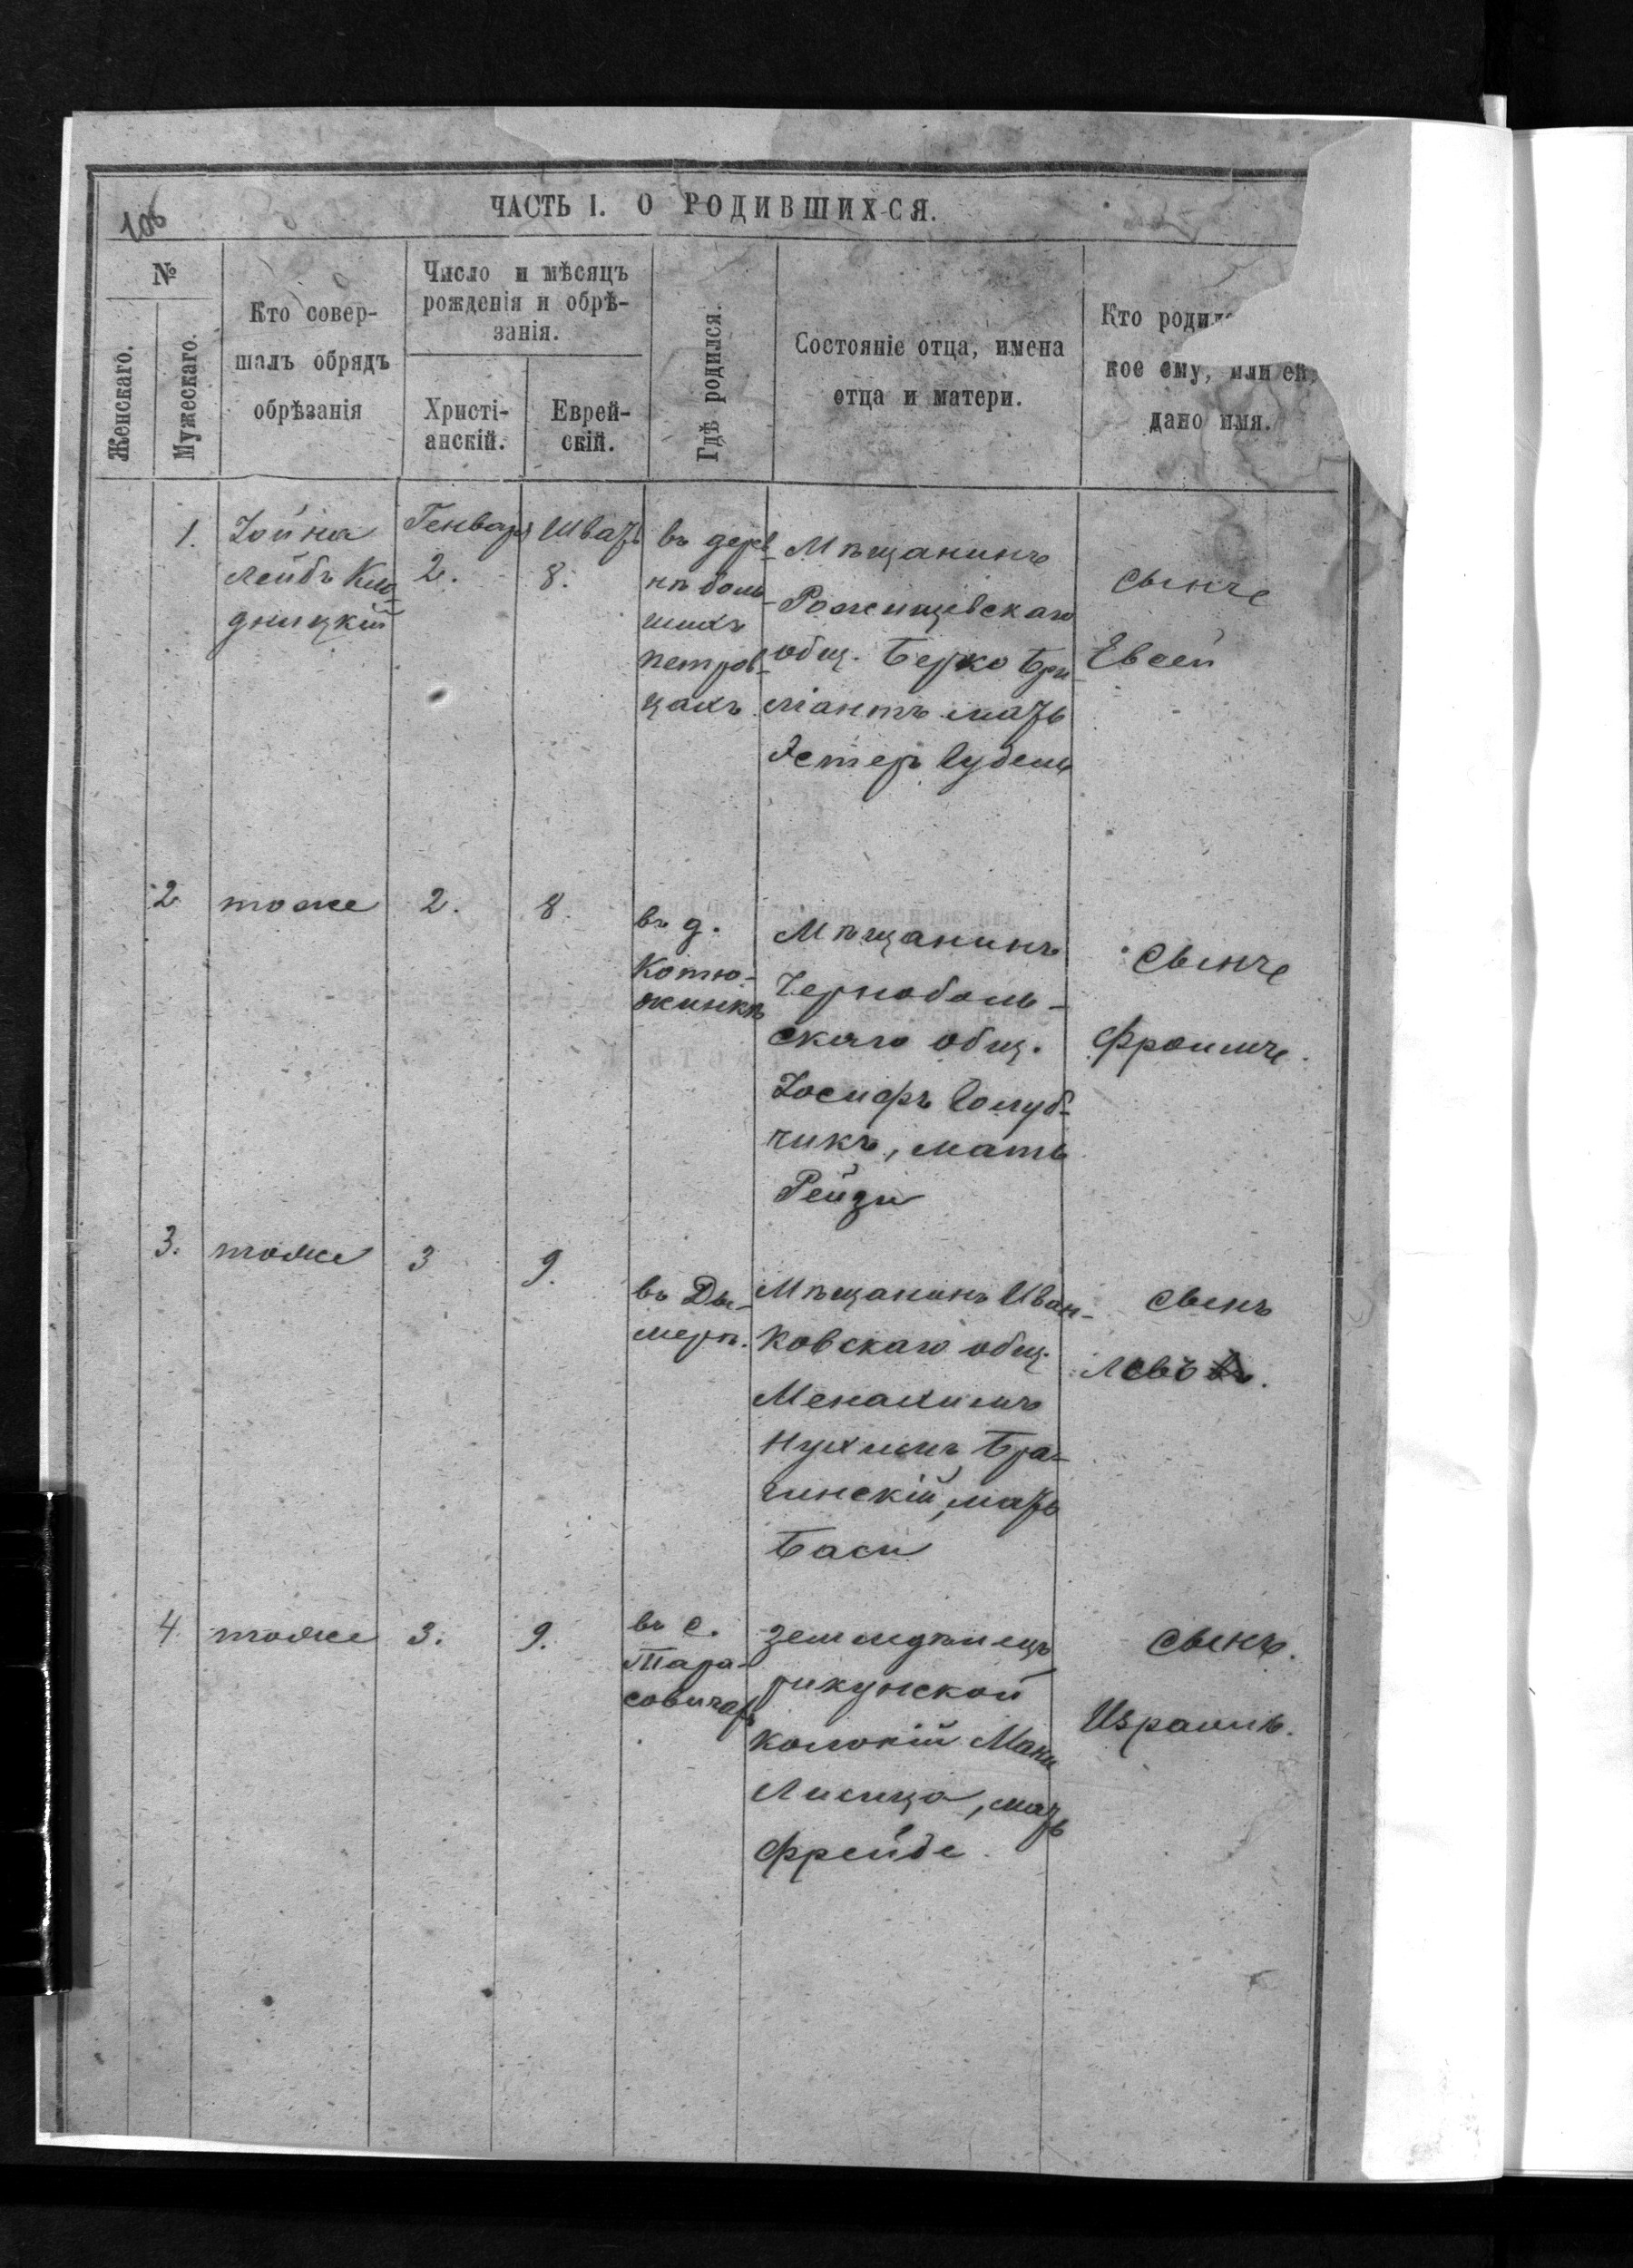 106
ЧАСТЬ I. О РОДИВШИХСЯ.
№
Женскаго.
Мужескаго.
Кто совер-
шалъ обрядъ
обрѣзанія
Число и мѣсяцъ
рожденія и обрѣ-
занія.
Христі-
анскій.
Еврей-
скій.
Гдѣ родился.
Состояніе отца, имена
отца и матери.
Кто родил
кое ему, или ей,
дано имя.
1.
Іойна
Лейбъ Кло-
дницкій
Генваря
2.
Шватъ
8.
въ дерев-
нѣ боль-
шихъ
петров-
цахъ
Мѣщанинъ
Рожищевскаго
общ. Берко Бри-
ліантъ мать
Эстер
сынъ
Евсей
2
тоже
2.
8.
въ д.
Котю-
жинкѣ
Мѣщанинъ
Чернобыль-
скаго общ.
Іосифъ Голуб-
чикъ, мать
Рейзи
сынъ
Фроимъ.
3.
тоже
3
9.
въ Ды-
мерѣ.
Мѣщанинъ Иван-
ковскаго общ.
Менахимъ
Нухимъ Бра-
гинскій, мать
Баси
сынъ
Левъ.
4
тоже
3.
9.
въ с.
Тара-
совичахъ
земледѣлецъ
рикунской
колоніи Мани
Лисица, мать
Фрейде.
сынъ.
Израиль.